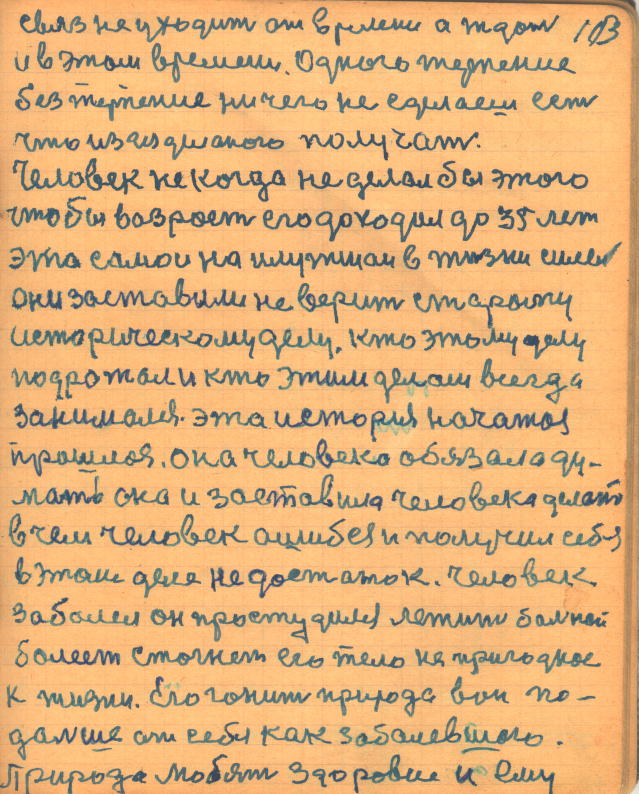 связ не уходит от времени а ждет 103
и в этом времени. Одного терпение
без терпение ничего не сделаеш ест
что из зделаного получат.
Человек некогда не делал бы этого
чтобы возрост его доходил до 35 лет
эта самои на илутшаи в жизни силы
они заставили не верит старому
историческому делу, кто этому делу
подрожал и кто этим делом всегда
занимался. эта история начатая
прошлоя. она человека обязала ду-
мать она и заставила человека делать
в чем человек ошибся и получил себя
в этом деле недостаток. человек
заболел он простудился лежит болной
болеет стогнет его тело не пригодное
к жизни. Его гонит природа вон по-
далше от себя как заболевшого.
Природа любят здоровие и ему